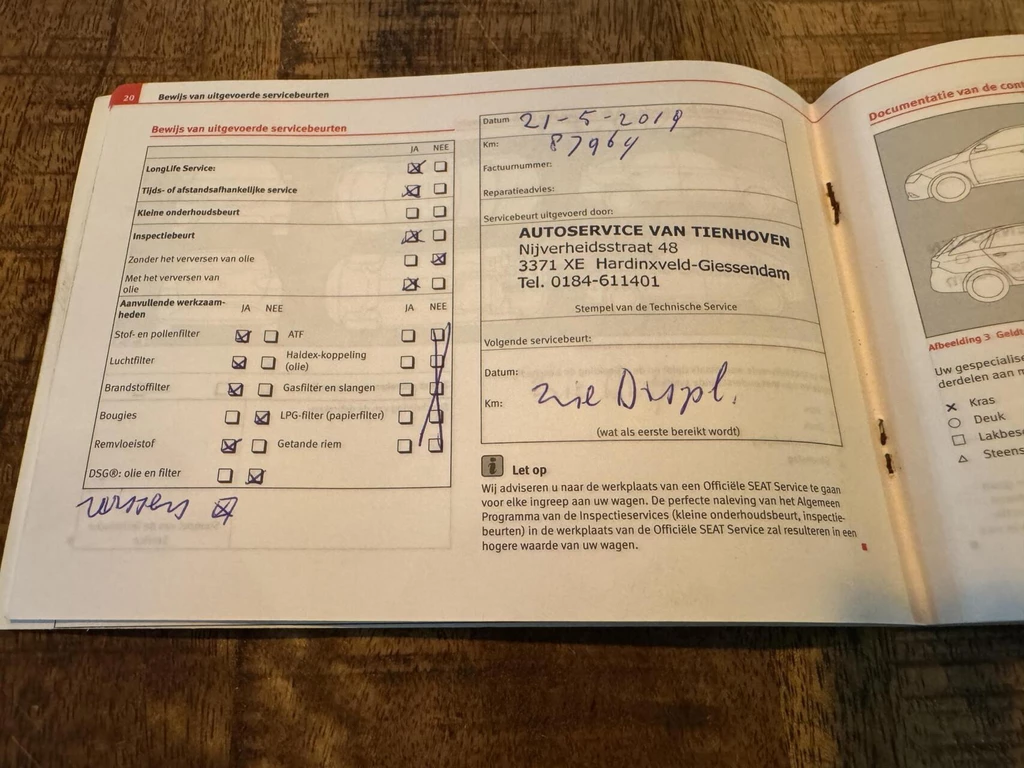 20
Bewijs van uitgevoerde servicebeurten
Bewijs van uitgevoerde servicebeurten
JA NEE
LongLife Service:
Tijds- of afstandsafhankelijke service
Kleine onderhoudsbeurt
Inspectiebeurt
Zonder het verversen van olie
Met het verversen van
olie
Aanvullende werkzaam-
heden
JA NEE JA NEE
Stof- en pollenfilter ATF
Luchtfilter Haldex-koppeling
(olie)
Brandstoffilter Gasfilter en slangen
Bougies LPG-filter (papierfilter)
Remvloeistof Getande riem
DSG®: olie en filter
Datum 21-5-2019
Km: 87964
Factuurnummer:
Reparatieadvies:
Servicebeurt uitgevoerd door:
AUTOSERVICE VAN TIENHOVEN
Nijverheidsstraat 48
3371 XE Hardinxveld-Giessendam
Tel. 0184-611401
Stempel van de Technische Service
Volgende servicebeurt:
Datum:
Km: zie Displ.
(wat als eerste bereikt wordt)
i Let op
Wij adviseren u naar de werkplaats van een Officiële SEAT Service te gaan
voor elke ingreep aan uw wagen. De perfecte naleving van het Algemeen
Programma van de Inspectieservices (kleine onderhoudsbeurt, inspectie-
beurten) in de werkplaats van de Officiële SEAT Service zal resulteren in een
hogere waarde van uw wagen.
Documentatie van de
Afbeelding 3
Uw
derdelen aan
Kras
Deuk